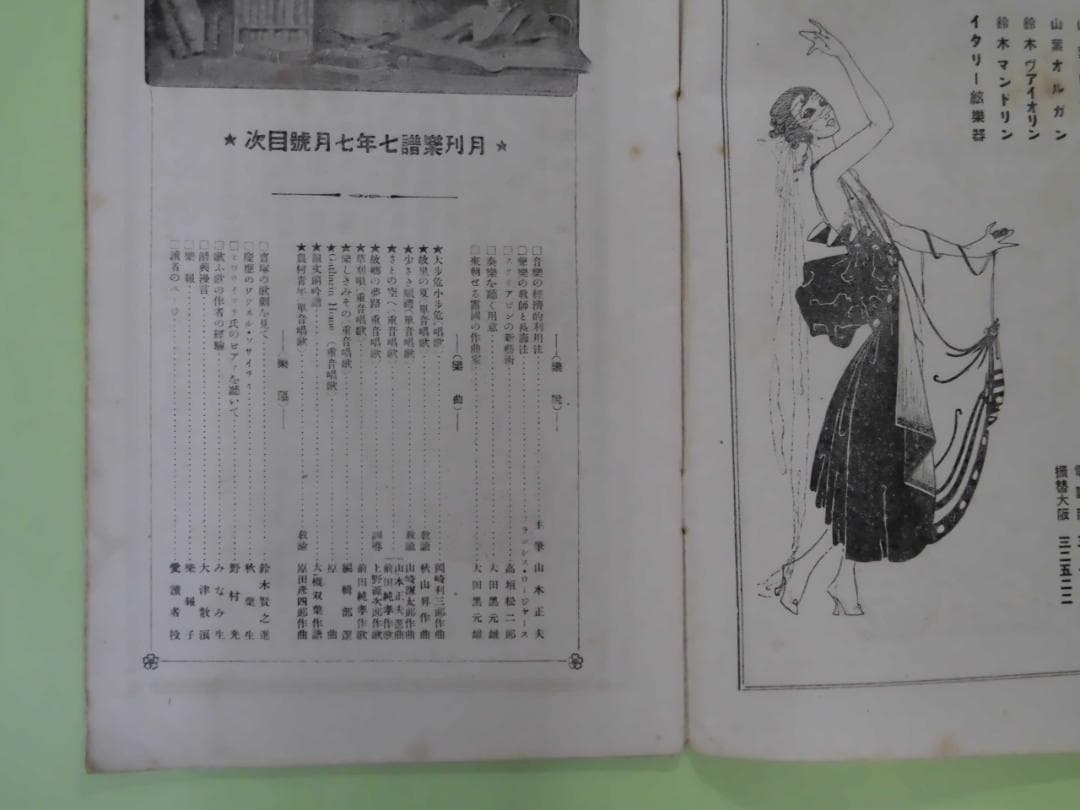 ★月刊樂譜七年七月號目次★
――(樂說)――
□音樂の經濟的利用法 主筆 山本正夫
□聲樂の教師と長壽法 フランシス・ロージャース
□スクリアビンの新藝術 高垣松二郎
□奏樂を聽く用意 大田黑元雄
□來朝せる露國の作曲家 大田黑元雄
――(樂曲)――
★大步危小步危(唱歌) 岡崎利三郎作曲
★故里の夏(單音唱歌) 教諭 秋山昇作曲
★少さき願禮(單音唱歌) 教諭 山崎彌太郎作曲
★さとの空へ(重音唱歌) 山本正夫選曲 前田純孝作歌
★故鄉の夢路(重音唱歌) 訓導 上野源次郎作歌
★草刈唄(重音唱歌) 前田純孝作歌
★樂しきみその(重音唱歌) 編輯部選
★Gatharin Home(重音唱歌) 原曲
★韻文朗吟譜 大槻双葉作譜
★農村青年(單音唱歌) 教諭 原田彥四郎作曲
――樂
□寶塚の歌劇を見て 鈴木賢之進
□慶應のワグネル・ソサイチー 秋葉生
氏のピアノを聽いて 野村光
□歌ふ歌の作者の經驗 みなみ生
□讚美漫言 大津散浪
□樂報 樂報子
□讀者のページ 愛讀者投
山葉オルガン
鈴木ヴァイオリン
鈴木マンドリン
イタリー絃樂器
振替大阪 三二五二二